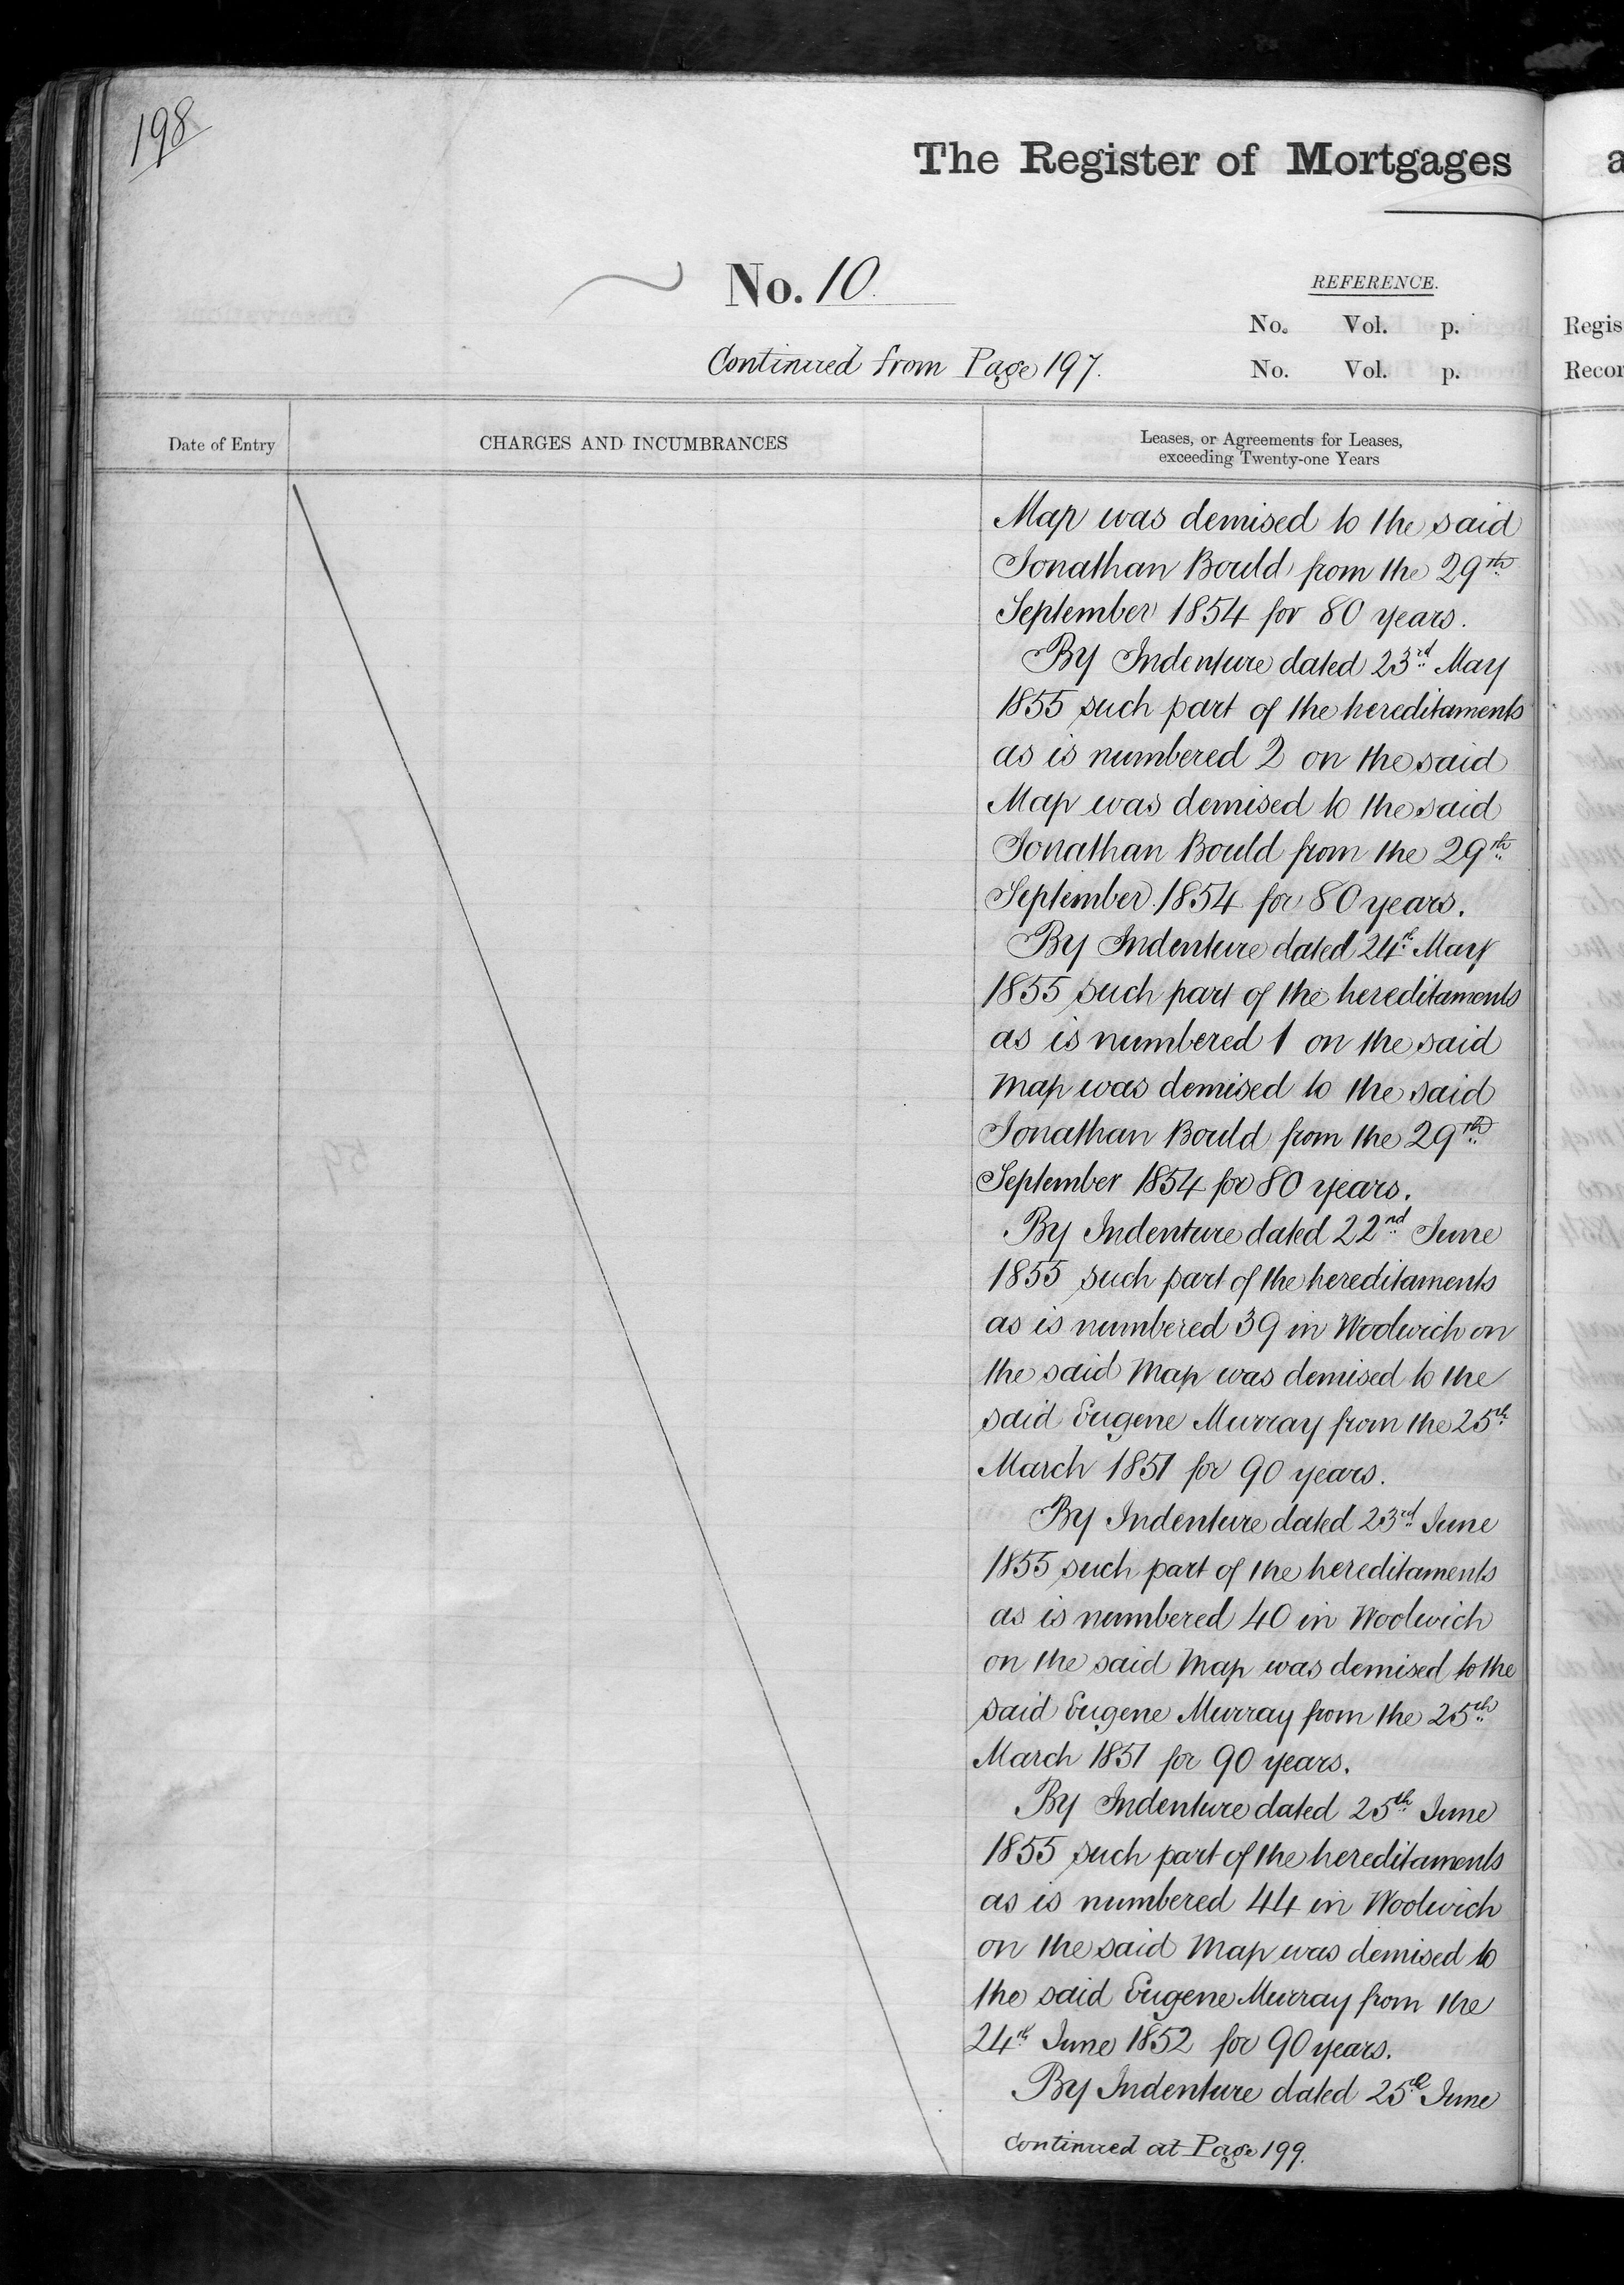 198
The Register of Mortgages
No. 10.
REFERENCE.
No. Vol. p.
No. Vol. p.
Continued from Page 197.
Date of Entry
CHARGES AND INCUMBRANCES
Leases, or Agreements for Leases,
exceeding Twenty-one Years
Map was demised to the said
Jonathan Bould from the 29th
September 1854 for 80 years.
By Indenture dated 23rd May
1855 such part of the hereditaments
as is numbered 2 on the said
Map was demised to the said
Jonathan Bould from the 29th
September 1854 for 80 years.
By Indenture dated 24th May
1855 such part of the hereditaments
as is numbered 1 on the said
Map was demised to the said
Jonathan Bould from the 29th
September 1854 for 80 years.
By Indenture dated 22nd June
1855 such part of the hereditaments
as is numbered 39 in Woolwich on
the said Map was demised to the
said Eugene Murray from the 25th
March 1851 for 90 years.
By Indenture dated 23rd June
1855 such part of the hereditaments
as is numbered 40 in Woolwich
on the said Map was demised to the
said Eugene Murray from the 25th
March 1851 for 90 years.
By Indenture dated 25th June
1855 such part of the hereditaments
as is numbered 44 in Woolwich
on the said Map was demised to
the said Eugene Murray from the
24th June 1852 for 90 years.
By Indenture dated 25th June
continued at Page 199.
a
Regis
Recor